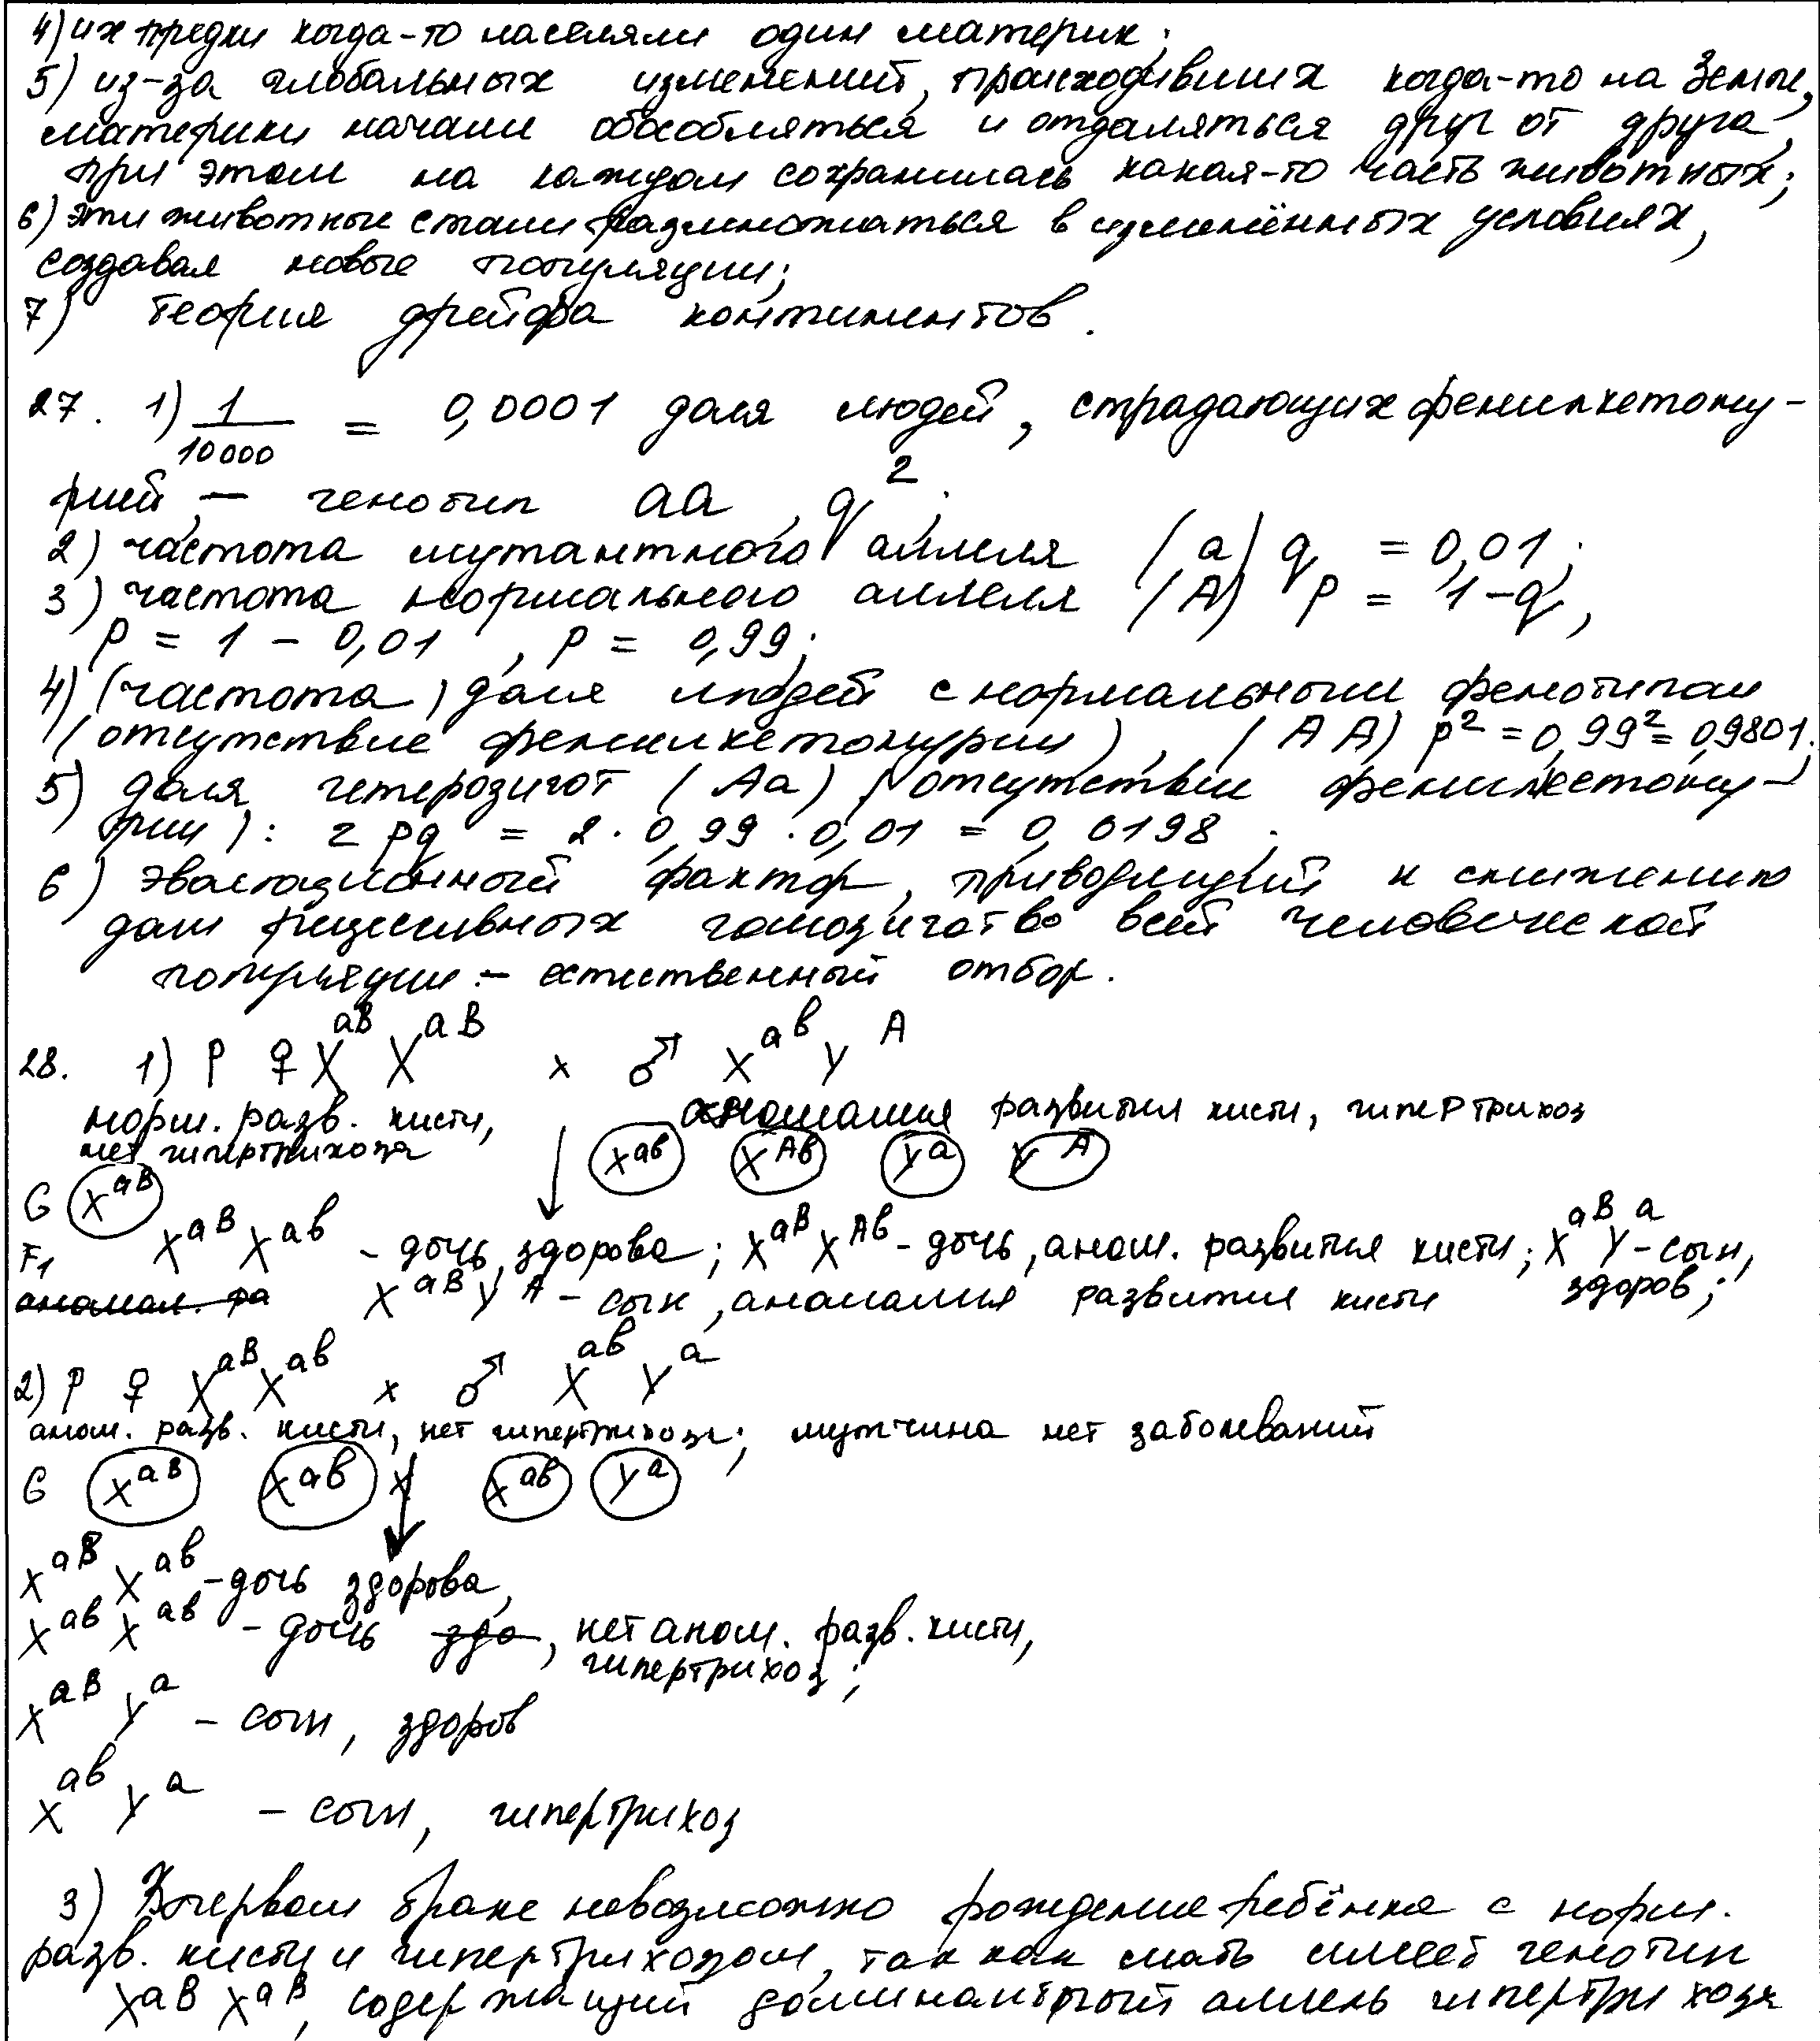 4) их предки когда-то населяли один материк;
5) из-за глобальных изменений, происходивших когда-то на Земле,
материки начали обособляться и отдаляться друг от друга,
при этом на каждом сохранилась какая-то часть животных;
6) эти животные стали размножаться в изменённых условиях,
создавая новые популяции;
7) теория дрейфа континентов.
27. 1) 1/10000 = 0,0001 доля людей, страдающих фенилкетону-
рией, — генотип aa, q²;
2) частота мутантного аллеля (a) q = 0,01;
3) частота нормального аллеля (A) p = 1-q,
p = 1 - 0,01, p = 0,99;
4) (частота) доля людей с нормальным фенотипом
(отсутствие фенилкетонурии), (AA) p² = 0,99² = 0,9801;
5) доля гетерозигот (Aa) (отсутствии фенилкетону-
рии): 2pq = 2·0,99·0,01 = 0,0198.
6) эваляционный фактор, приводящий к снижению
доли рецессивных гомозигот во всей человеческой
популяции - естественный отбор.
28. 1) P ♀ X^aB X^aB x ♂ X^aв Y^A
норм. разв. кисти, аномалия развития кисти, гипертрихоз
нет гипертрихоза
X^aв X^Aв Y^a Y^A
G X^aB
F1 X^aB X^aв - дочь, здорова; X^aB X^Aв - дочь, аном. развития кисти; X^aB Y^a - сын,
здоров;
аномал. ра X^aB Y^A - сын, аномалия развития кисти
2) P ♀ X^aB X^aв x ♂ X^aв Y^a
аном. разв. кисти, нет гипертрихоза; мужчина нет заболеваний
G X^aB X^aв x X^aв Y^a
X^aB X^aв - дочь здорова,
X^aв X^aв - дочь здо, нет аном. разв. кисти,
гипертрихоз;
X^aB Y^a - сын, здоров
X^aв Y^a - сын, гипертрихоз
3) В первом браке невозможно рождение ребёнка с норм.
разв. кисти и гипертрихозом, так как мать имеет генотип
X^aB X^aB, содержащий доминантный аллель гипертрихоза